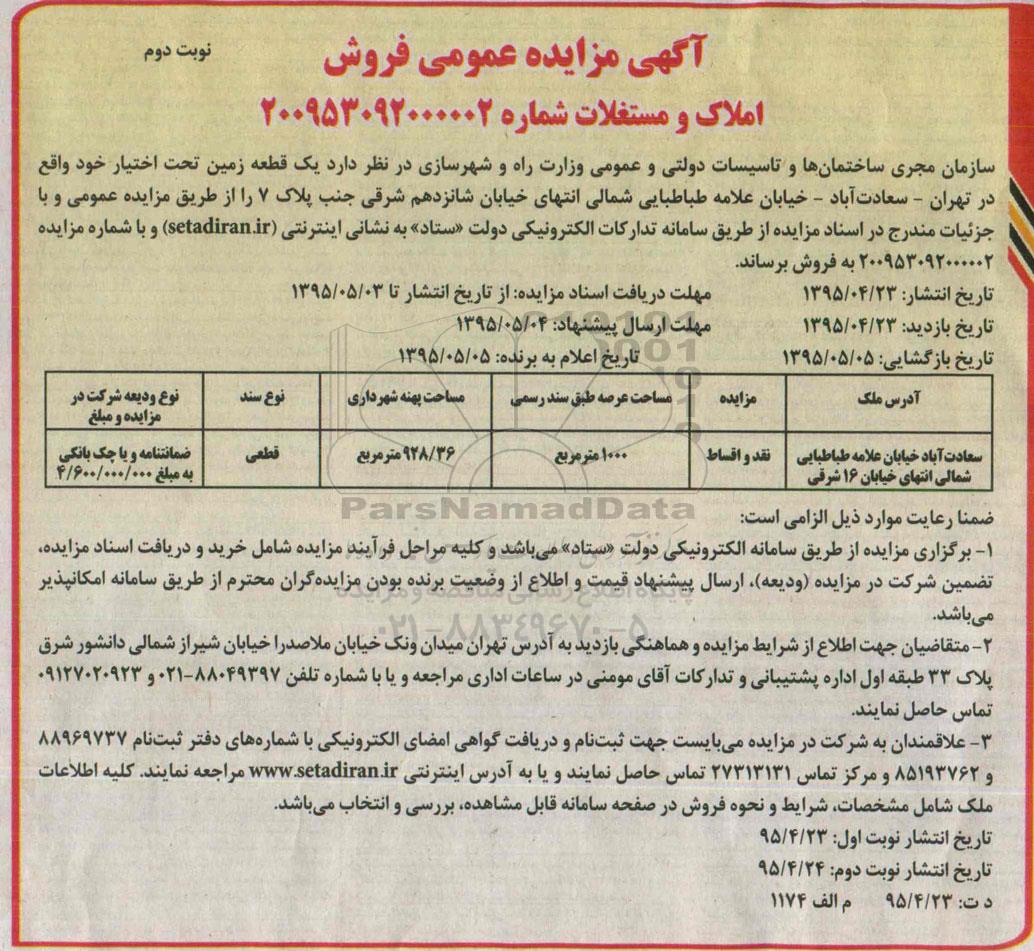 آگهی مزایده عمومی فروش
نوبت دوم
املاک و مستغلات شماره ۲۰۰۹۵۳۰۹۲۰۰۰۰۰۲
سازمان مجری ساختمان‌ها و تاسیسات دولتی و عمومی وزارت راه و شهرسازی در نظر دارد یک قطعه زمین تحت اختیار خود واقع
در تهران - سعادت‌آباد - خیابان علامه طباطبایی شمالی انتهای خیابان شانزدهم شرقی جنب پلاک ۷ را از طریق مزایده عمومی و با
جزئیات مندرج در اسناد مزایده از طریق سامانه تدارکات الکترونیکی دولت «ستاد» به نشانی اینترنتی (setadiran.ir) و با شماره مزایده
۲۰۰۹۵۳۰۹۲۰۰۰۰۰۲ به فروش برساند.
تاریخ انتشار: ۱۳۹۵/۰۴/۲۳ مهلت دریافت اسناد مزایده: از تاریخ انتشار تا ۱۳۹۵/۰۵/۰۳
تاریخ بازدید: ۱۳۹۵/۰۴/۲۳ مهلت ارسال پیشنهاد: ۱۳۹۵/۰۵/۰۴
تاریخ بازگشایی: ۱۳۹۵/۰۵/۰۵ تاریخ اعلام به برنده: ۱۳۹۵/۰۵/۰۵
آدرس ملک مزایده مساحت عرصه طبق سند رسمی مساحت پهنه شهرداری نوع سند نوع ودیعه شرکت در
مزایده و مبلغ
سعادت‌آباد خیابان علامه طباطبایی نقد و اقساط ۱۰۰۰ مترمربع ۹۲۸/۳۶ مترمربع قطعی ضمانتنامه و یا چک بانکی
شمالی انتهای خیابان ۱۶ شرقی به مبلغ ۴/۶۰۰/۰۰۰/۰۰۰
ParsNamadData
ضمنا رعایت موارد ذیل الزامی است:
۱- برگزاری مزایده از طریق سامانه الکترونیکی دولت «ستاد» می‌باشد و کلیه مراحل فرآیند مزایده شامل خرید و دریافت اسناد مزایده،
تضمین شرکت در مزایده (ودیعه)، ارسال پیشنهاد قیمت و اطلاع از وضعیت برنده بودن مزایده‌گران محترم از طریق سامانه امکانپذیر
پایگاه اطلاع رسانی مناقصه و مزایده
می‌باشد.
۰۲۱-۸۸۳۴۹۶۷۰-۵
۲- متقاضیان جهت اطلاع از شرایط مزایده و هماهنگی بازدید به آدرس تهران میدان ونک خیابان ملاصدرا خیابان شیراز شمالی دانشور شرق
پلاک ۳۳ طبقه اول اداره پشتیبانی و تدارکات آقای مومنی در ساعات اداری مراجعه و یا با شماره تلفن ۸۸۰۴۹۳۹۷-۰۲۱ و ۰۹۱۲۷۰۲۰۹۲۳
تماس حاصل نمایند.
۳- علاقمندان به شرکت در مزایده می‌بایست جهت ثبت‌نام و دریافت گواهی امضای الکترونیکی با شماره‌های دفتر ثبت‌نام ۸۸۹۶۹۷۳۷
و ۸۵۱۹۳۷۶۲ و مرکز تماس ۲۷۳۱۳۱۳۱ تماس حاصل نمایند و یا به آدرس اینترنتی www.setadiran.ir مراجعه نمایند. کلیه اطلاعات
ملک شامل مشخصات، شرایط و نحوه فروش در صفحه سامانه قابل مشاهده، بررسی و انتخاب می‌باشد.
تاریخ انتشار نوبت اول: ۹۵/۴/۲۳
تاریخ انتشار نوبت دوم: ۹۵/۴/۲۴
د ت: ۹۵/۴/۲۳ م الف ۱۱۷۴